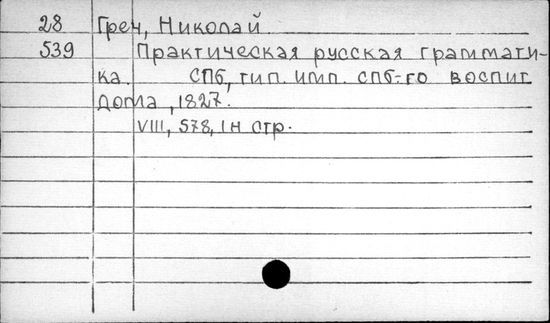 28 Греч, Николай
539 Практическая русская граммати-
ка. СПб, тип. имп. спб-го воспит
дома, 1827.
VIII, 578, 1н стр.